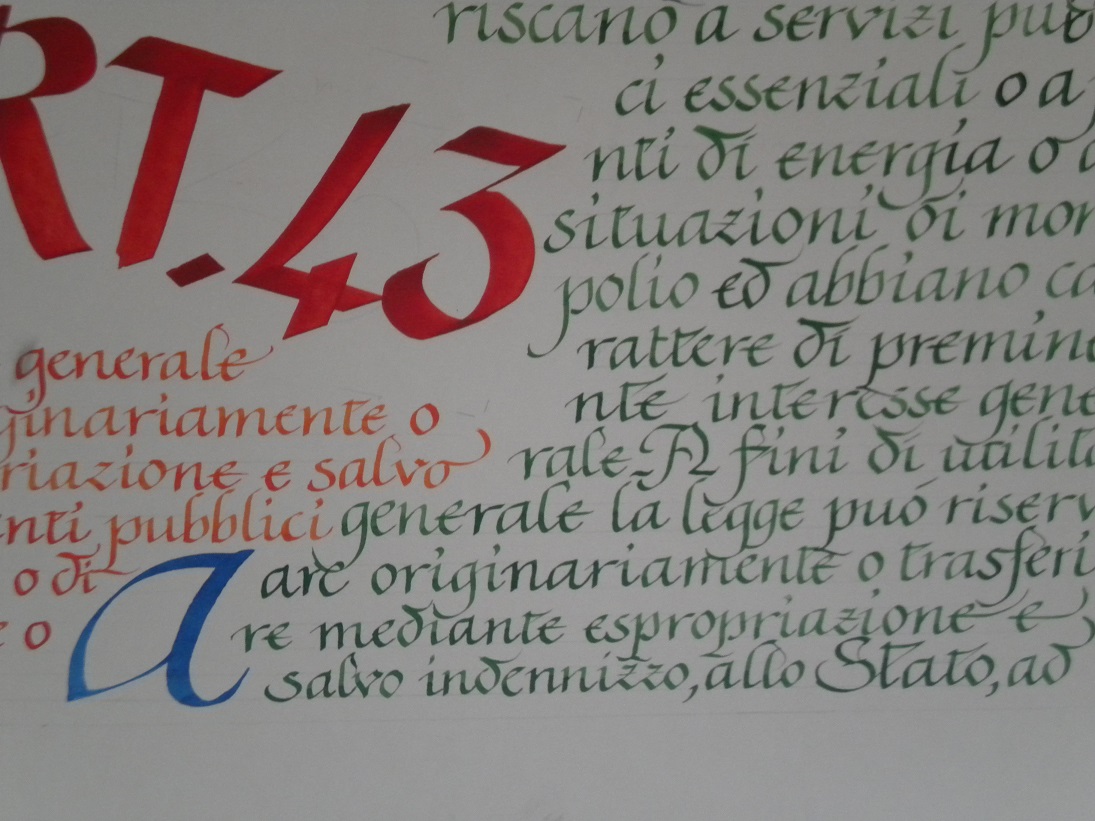 RT. 43
generale
ginariamente o
riazione e salvo
enti pubblici
o di
e o
riscano a servizi pub
ci essenziali o a f
nti di energia o a
situazioni di mon
polio ed abbiano ca
rattere di premine
nte interesse gene
rale. A fini di utilita
generale la legge puó riserv
are originariamente o trasferi
A re mediante espropriazione e
salvo indennizzo, allo Stato, ad